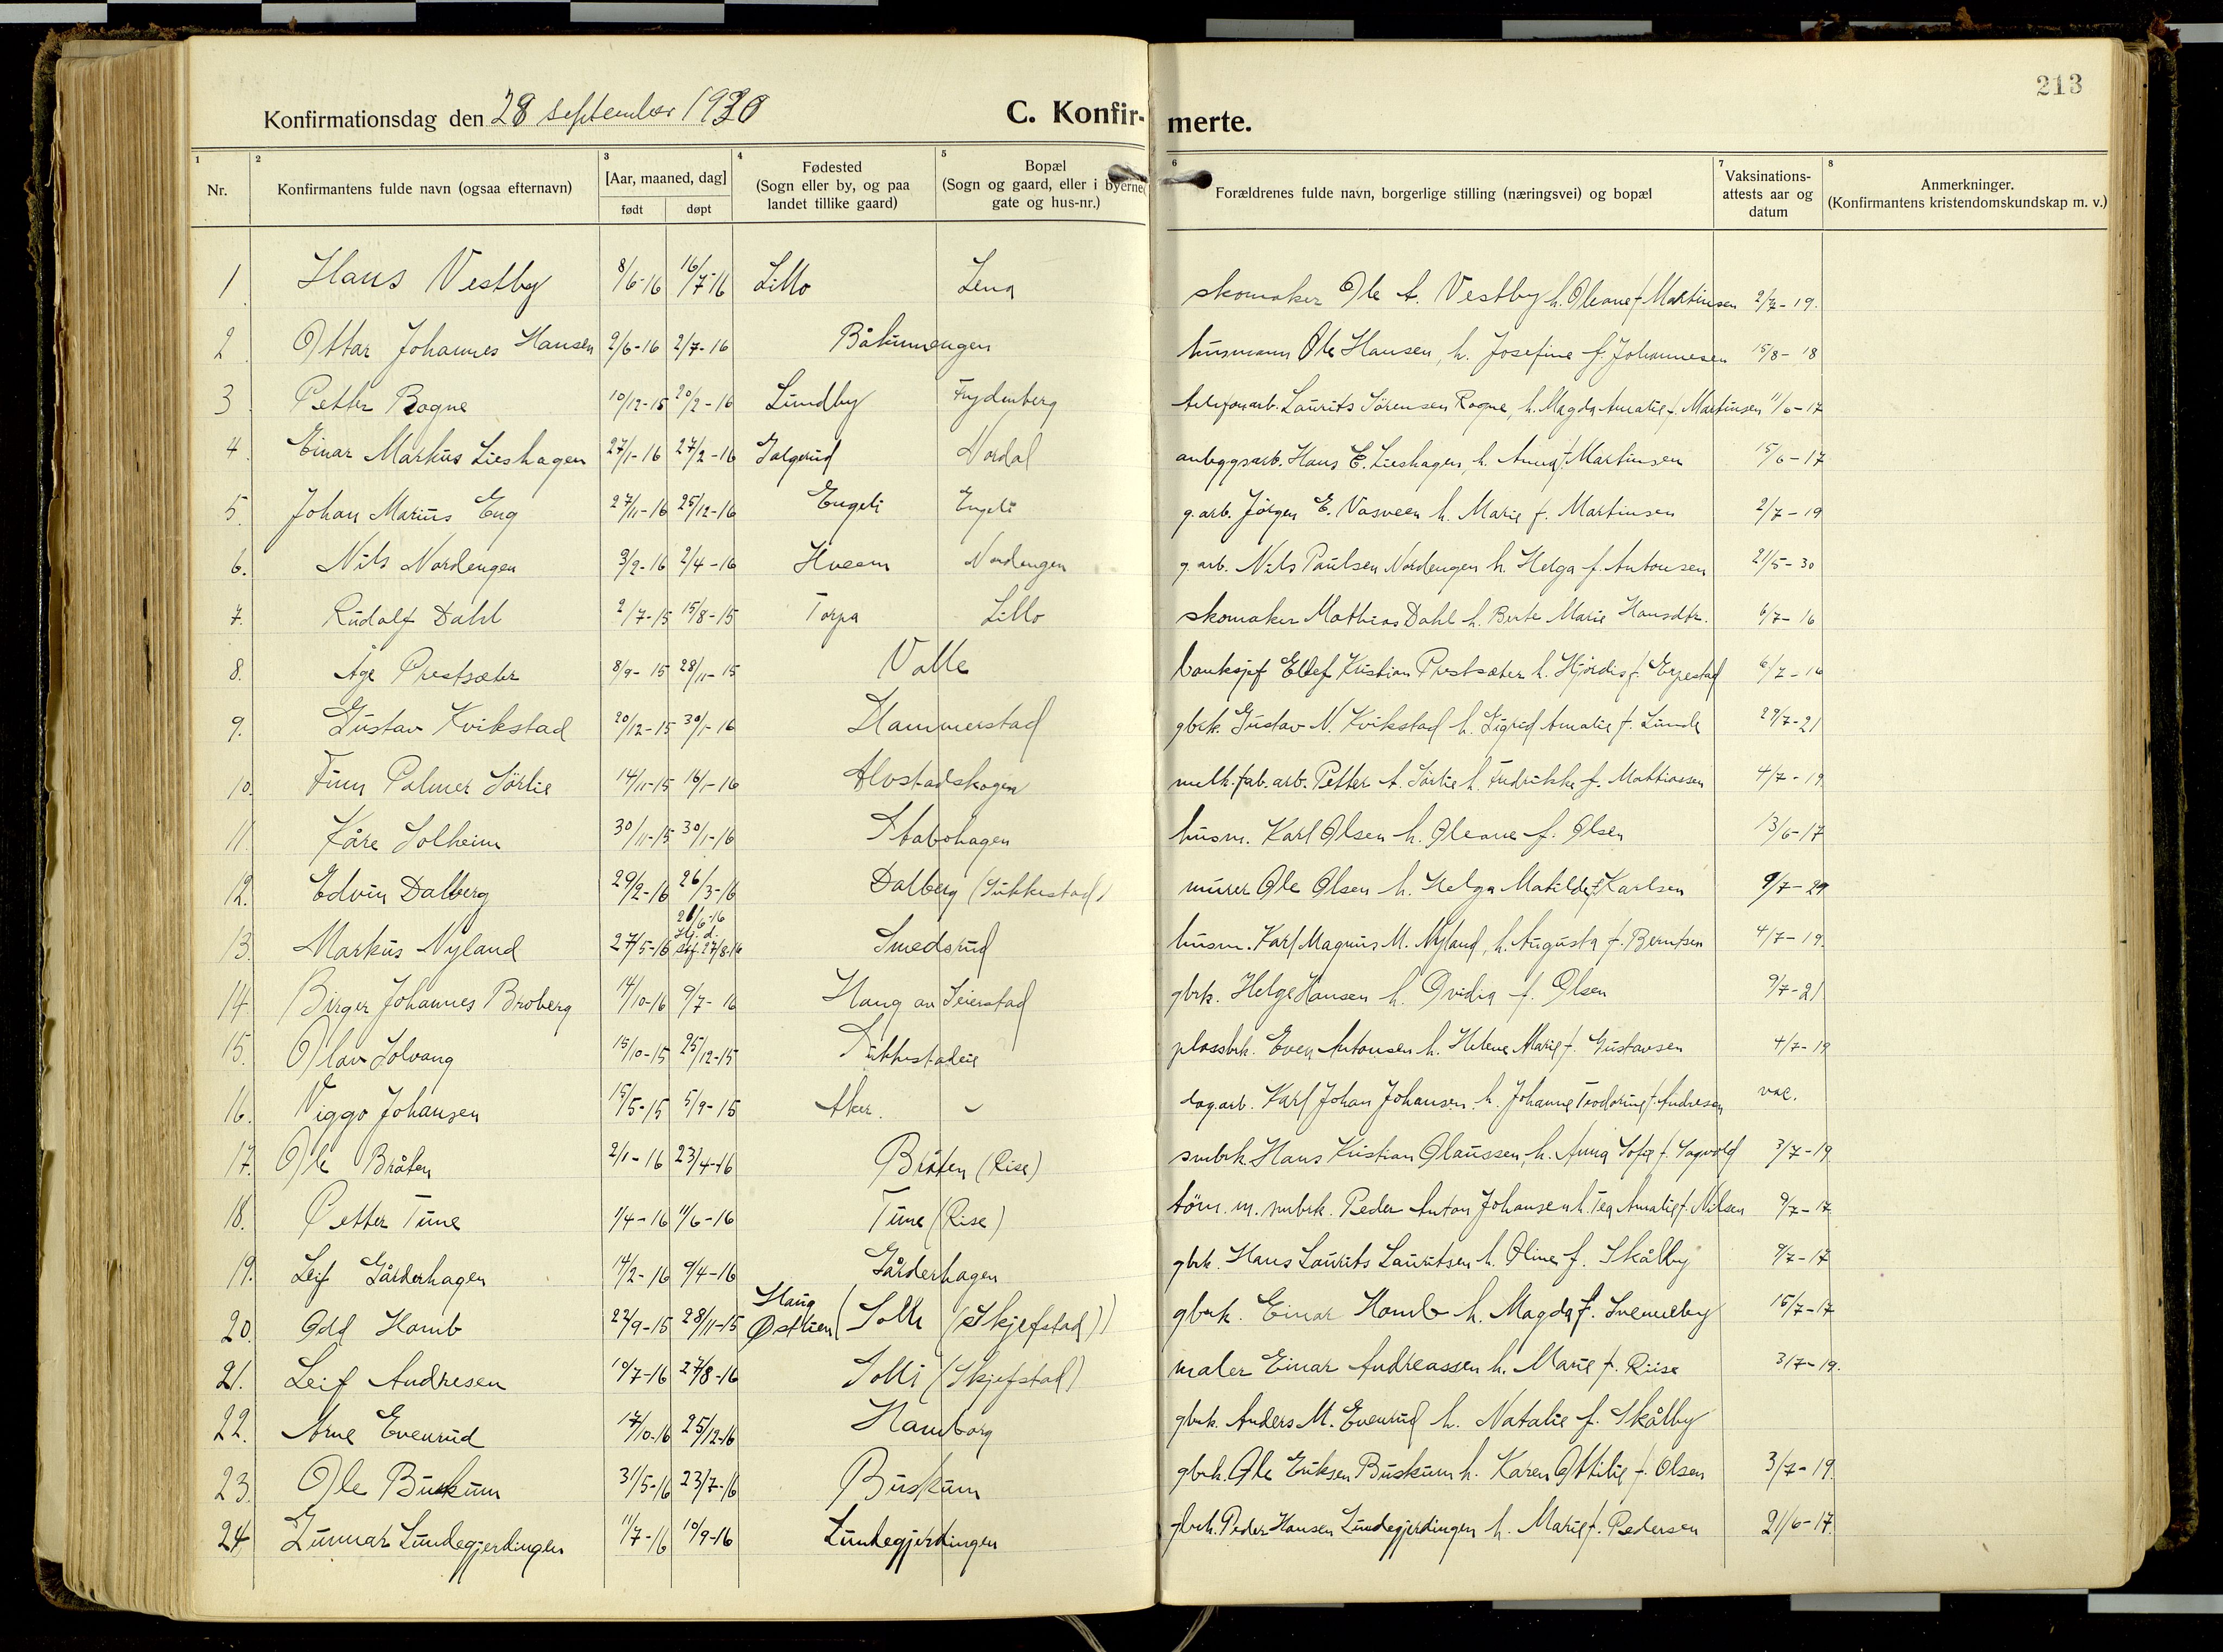 213
Konfirmationsdag den 28 september 1930 C. Konfir- merte.
1 2 3 4 5 6 7 8
Nr. Konfirmantens fulde navn (ogsaa efternavn) [Aar, maaned, dag] født døpt Fødested (Sogn eller by, og paa landet tillike gaard) Bopæl (Sogn og gaard, eller i byerne gate og hus-nr.) Forældrenes fulde navn, borgerlige stilling (næringsvei) og bopæl Vaksinations-attests aar og datum Anmerkninger. (Konfirmantens kristendomskundskap m. v.)
1 Hans Vestby 8/6-16 16/7-16 Lillo Lena skomaker Ole A. Vestby h. Oleane f. Martinsen 2/7-19.
2 Ottar Johannes Hansen 2/6-16 2/7-16 Båkinnengen husmann Ole Hansen, h. Josefine f. Johannesen 15/8-18
3 Petter Rogne 10/12-15 20/2-16 Lundby Frydenberg telefonarb. Laurits Sørensen Rogne, h. Magda Amalie f. Martinsen 11/6-17
4 Einar Markus Lieshagen 27/1-16 27/2-16 Galgerud Nordal anleggsarb. Hans E. Lieshagen, h. Anna f. Martinsen 15/6-17
5. Johan Marius Eng 27/11-16 25/12-16 Engeli Engeli g. arb. Jørgen E. Vasveen h. Marie f. Martinsen 2/7-19
6. Nils Nordengen 3/2-16 2/4-16 Hveem Nordengen g. arb. Nils Paulsen Nordengen h. Helga f. Antonsen 21/5-30
7. Rudolf Dahl 2/7-15 15/8-15 Torpa Lillo skomaker Mathias Dahl h. Berte Marie Hansdtr. 6/7-16
8. Åge Prestsæter 8/9-15 28/11-15 Valle banksjef Ellef Kristian Prestsæter h. Hjørdis f. Erpestad 6/7-16
9. Gustav Kvikstad 20/12-15 30/1-16 Hammerstad gbrk. Gustav N. Kvikstad h. Sigrid Amalie f. Lunde 29/7-21
10. Finn Palmer Sørlie 14/11-15 16/1-16 Alvstadskogen melk.fab.arb. Petter A. Sørlie h. Fredrikke f. Mathiassen 4/7-19.
11. Kåre Solheim 30/11-15 30/1-16 Stabohagen husm. Karl Olsen h. Oleane f. Olsen 13/6-17
12. Edvin Dalberg 29/2-16 26/3-16 Dalberg (Sukkestad) murer Ole Olsen h. Helga Matilde f. Karlsen 9/7-29
13. Markus Nyland 27/5-16 21/6-16 Hj. d. stf. 27/8-16 Smedsrud husm. Karl Magnus M. Nyland, h. Augusta f. Berntsen 4/7-19.
14. Birger Johannes Broberg 14/10-16 9/7-16 Haug av Seierstad gbrk. Helge Hansen h. Ovidia f. Olsen 9/7-21
15. Olav Solvang 15/10-15 25/12-15 Sukkestadeie plassbrk. Even Antonsen h. Helene Marie f. Gustavsen 4/7-19
16. Viggo Johansen 15/5-15 5/9-15 Aker. dag.arb. Karl Johan Johansen h. Johanne Teodorine f. Andresen vac.
17. Ole Bråten 2/1-16 23/4-16 Bråten (Rise) smbrk. Hans Kristian Olaussen, h. Anna Sofie f. Sagvold 3/7-19
18. Petter Tune 1/4-16 11/6-16 Tune (Rise) tøm. m. smbrk. Peder Anton Johansen h. Tea Amalie f. Nilsen 9/7-17
19. Leif Gårderhagen 14/2-16 9/4-16 Gårderhagen gbrk. Hans Laurits Lauritsen h. Oline f. Skålby 9/7-17
20. Odd Homb 22/9-15 28/11-15 Haug Østlien (Solli (Skjefstad)) gbrk. Einar Homb h. Magda f. Svenneby 15/7-17
21. Leif Andresen 10/7-16 27/8-16 Solli (Skjefstad) maler Einar Andreassen h. Marie f. Riise 3/7-19.
22. Arne Evenrud 17/10-16 25/12-16 Hamborg gbrk. Anders M. Evenrud h. Natalie f. Skålby
23. Ole Buskum 31/5-16 23/7-16 Buskum gbrk. Ole Eriksen Buskum h. Karen Ottilie f. Olsen 3/7-19.
24. Gunnar Lundegjerdingen 11/7-16 10/9-16 Lundegjerdingen gbrk. Peder Hansen Lundegjerdingen h. Marie f. Pedersen 21/6-17.